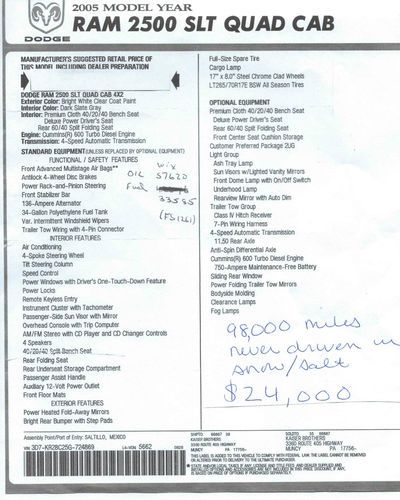 2005 MODEL YEAR
RAM 2500 SLT QUAD CAB
DODGE
MANUFACTURER'S SUGGESTED RETAIL PRICE OF
THIS MODEL INCLUDING DEALER PREPARATION
DODGE RAM 2500 SLT QUAD CAB 4X2
Exterior Color: Bright White Clear Coat Paint
Interior Color: Dark Slate Gray
Interior: Premium Cloth 40/20/40 Bench Seat
Deluxe Power Driver's Seat
Rear 60/40 Split Folding Seat
Engine: Cummins(R) 600 Turbo Diesel Engine
Transmission: 4-Speed Automatic Transmission
STANDARD EQUIPMENT (UNLESS REPLACED BY OPTIONAL EQUIPMENT)
FUNCTIONAL / SAFETY FEATURES
Front Advanced Multistage Air Bags**
Antilock 4-Wheel Disc Brakes
Power Rack-and-Pinion Steering
Front Stabilizer Bar
136-Ampere Alternator
34-Gallon Polyethylene Fuel Tank
Var. Intermittent Windshield Wipers
Trailer Tow Wiring with 4-Pin Connector
wix
OIL 57620
Fuel
33585
(FS1261)
INTERIOR FEATURES
Air Conditioning
4-Spoke Steering Wheel
Tilt Steering Column
Speed Control
Power Windows with Driver's One-Touch-Down Feature
Power Locks
Remote Keyless Entry
Instrument Cluster with Tachometer
Passenger-Side Sun Visor with Mirror
Overhead Console with Trip Computer
AM/FM Stereo with CD Player and CD Changer Controls
4 Speakers
40/20/40 Split Bench Seat
Rear Folding Seat
Rear Underseat Storage Compartment
Passenger Assist Handle
Auxiliary 12-Volt Power Outlet
Front Floor Mats
EXTERIOR FEATURES
Power Heated Fold-Away Mirrors
Bright Rear Bumper with Step Pads
Full-Size Spare Tire
Cargo Lamp
17" x 8.0" Steel Chrome Clad Wheels
LT265/70R17E BSW All Season Tires
OPTIONAL EQUIPMENT
Premium Cloth 40/20/40 Bench Seat
Deluxe Power Driver's Seat
Rear 60/40 Split Folding Seat
Front Center Seat Cushion Storage
Customer Preferred Package 2UG
Light Group
Ash Tray Lamp
Sun Visors w/Lighted Vanity Mirrors
Front Dome Lamp with On/Off Switch
Underhood Lamp
Rearview Mirror with Auto Dim
Trailer Tow Group
Class IV Hitch Receiver
7-Pin Wiring Harness
4-Speed Automatic Transmission
11.50 Rear Axle
Anti-Spin Differential Axle
Cummins(R) 600 Turbo Diesel Engine
750-Ampere Maintenance-Free Battery
Sliding Rear Window
Power Folding Trailer Tow Mirrors
Bodyside Molding
Clearance Lamps
Fog Lamps
98,000 miles
never driven in
snow/salt
$24,000
Assembly Point/Port of Entry: SALTILLO, MEXICO
VIN: 3D7-KR28C25G-724869
LA-VON 5662
SHIPTO:
KAISER BROTHERS
3390 ROUTE 405 HIGHWAY
MUNCY PA 17756-
SOLDTO:
KAISER BROTHERS
3390 ROUTE 405 HIGHWAY
MUNCY PA 17756-
THIS LABEL IS ADDED TO THIS VEHICLE TO COMPLY WITH FEDERAL LAW. THE LABEL CANNOT BE REMOVED
OR ALTERED PRIOR TO DELIVERY TO THE ULTIMATE PURCHASER.